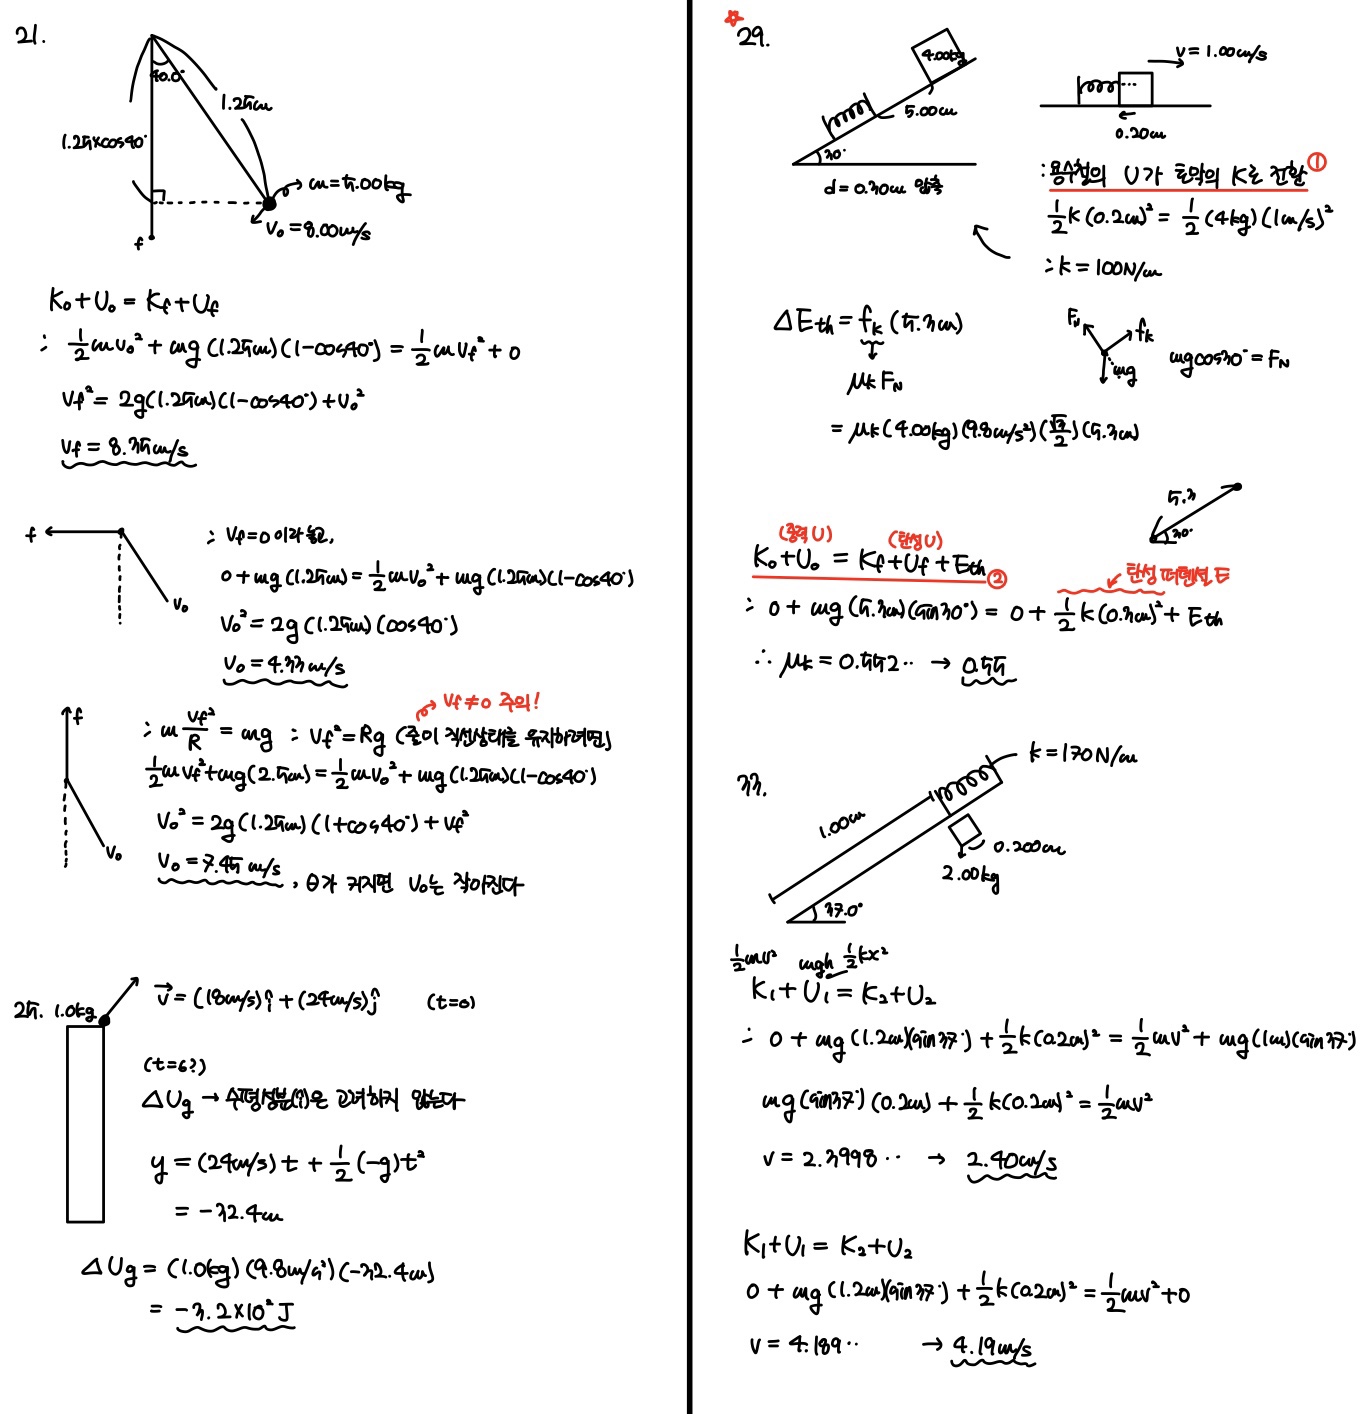 21.
40.0°
1.25m
1.25×cos40°
m=5.00kg
v₀=8.00m/s
f
K₀+U₀ = Kf+Uf
: ½mv₀² + mg(1.25m)(1-cos40°) = ½mVf² + 0
Vf² = 2g(1.25m)(1-cos40°)+v₀²
Vf = 8.35m/s
f
v₀
: Vf=0 이라 놓고,
0+mg(1.25m) = ½mv₀² + mg(1.25m)(1-cos40°)
v₀² = 2g(1.25m)(cos40°)
v₀ = 4.33m/s
Vf≠0 주의!
f
v₀
: m Vf²/R = mg : Vf²=Rg (줄이 직선상태를 유지하려면)
½mVf²+mg(2.5m) = ½mv₀² + mg(1.25m)(1-cos40°)
v₀² = 2g(1.25m)(1+cos40°) + Vf²
v₀ = 7.45 m/s , θ가 커지면 v₀는 작아진다
25. 1.0kg
v⃗ = (18m/s)î + (24m/s)ĵ (t=0)
(t=6?)
△Ug → 수평성분(î)은 고려하지 않는다
y = (24m/s)t + ½(-g)t²
= -32.4m
△Ug = (1.0kg)(9.8m/s²)(-32.4m)
= -3.2×10² J
☆
29.
4.00kg
5.00m
30°
d=0.30m 압축
v=1.00m/s
0.20m
: 용수철의 U가 토막의 K로 전환 ①
½k(0.2m)² = ½(4kg)(1m/s)²
: k = 100N/m
△Eth = fk (5.3m)
μk FN
FN
fk
mg
mgcos30° = FN
= μk(4.00kg)(9.8m/s²)(√3/2)(5.3m)
5.3
30°
(중력U) (탄성U)
K₀+U₀ = Kf+Uf+Eth ②
탄성 퍼텐셜 E
: 0 + mg(5.3m)(sin30°) = 0 + ½k(0.3m)² + Eth
∴ μk = 0.552·· → 0.55
33.
k=170N/m
1.00m
0.200m
2.00kg
37.0°
½mv² mgh ½kx²
K₁+U₁ = K₂+U₂
: 0 + mg(1.2m)(sin37°) + ½k(0.2m)² = ½mv² + mg(1m)(sin37°)
mg(sin37°)(0.2m) + ½k(0.2m)² = ½mv²
v = 2.3998·· → 2.40m/s
K₁+U₁ = K₂+U₂
0 + mg(1.2m)(sin37°) + ½k(0.2m)² = ½mv²+0
v = 4.189·· → 4.19m/s